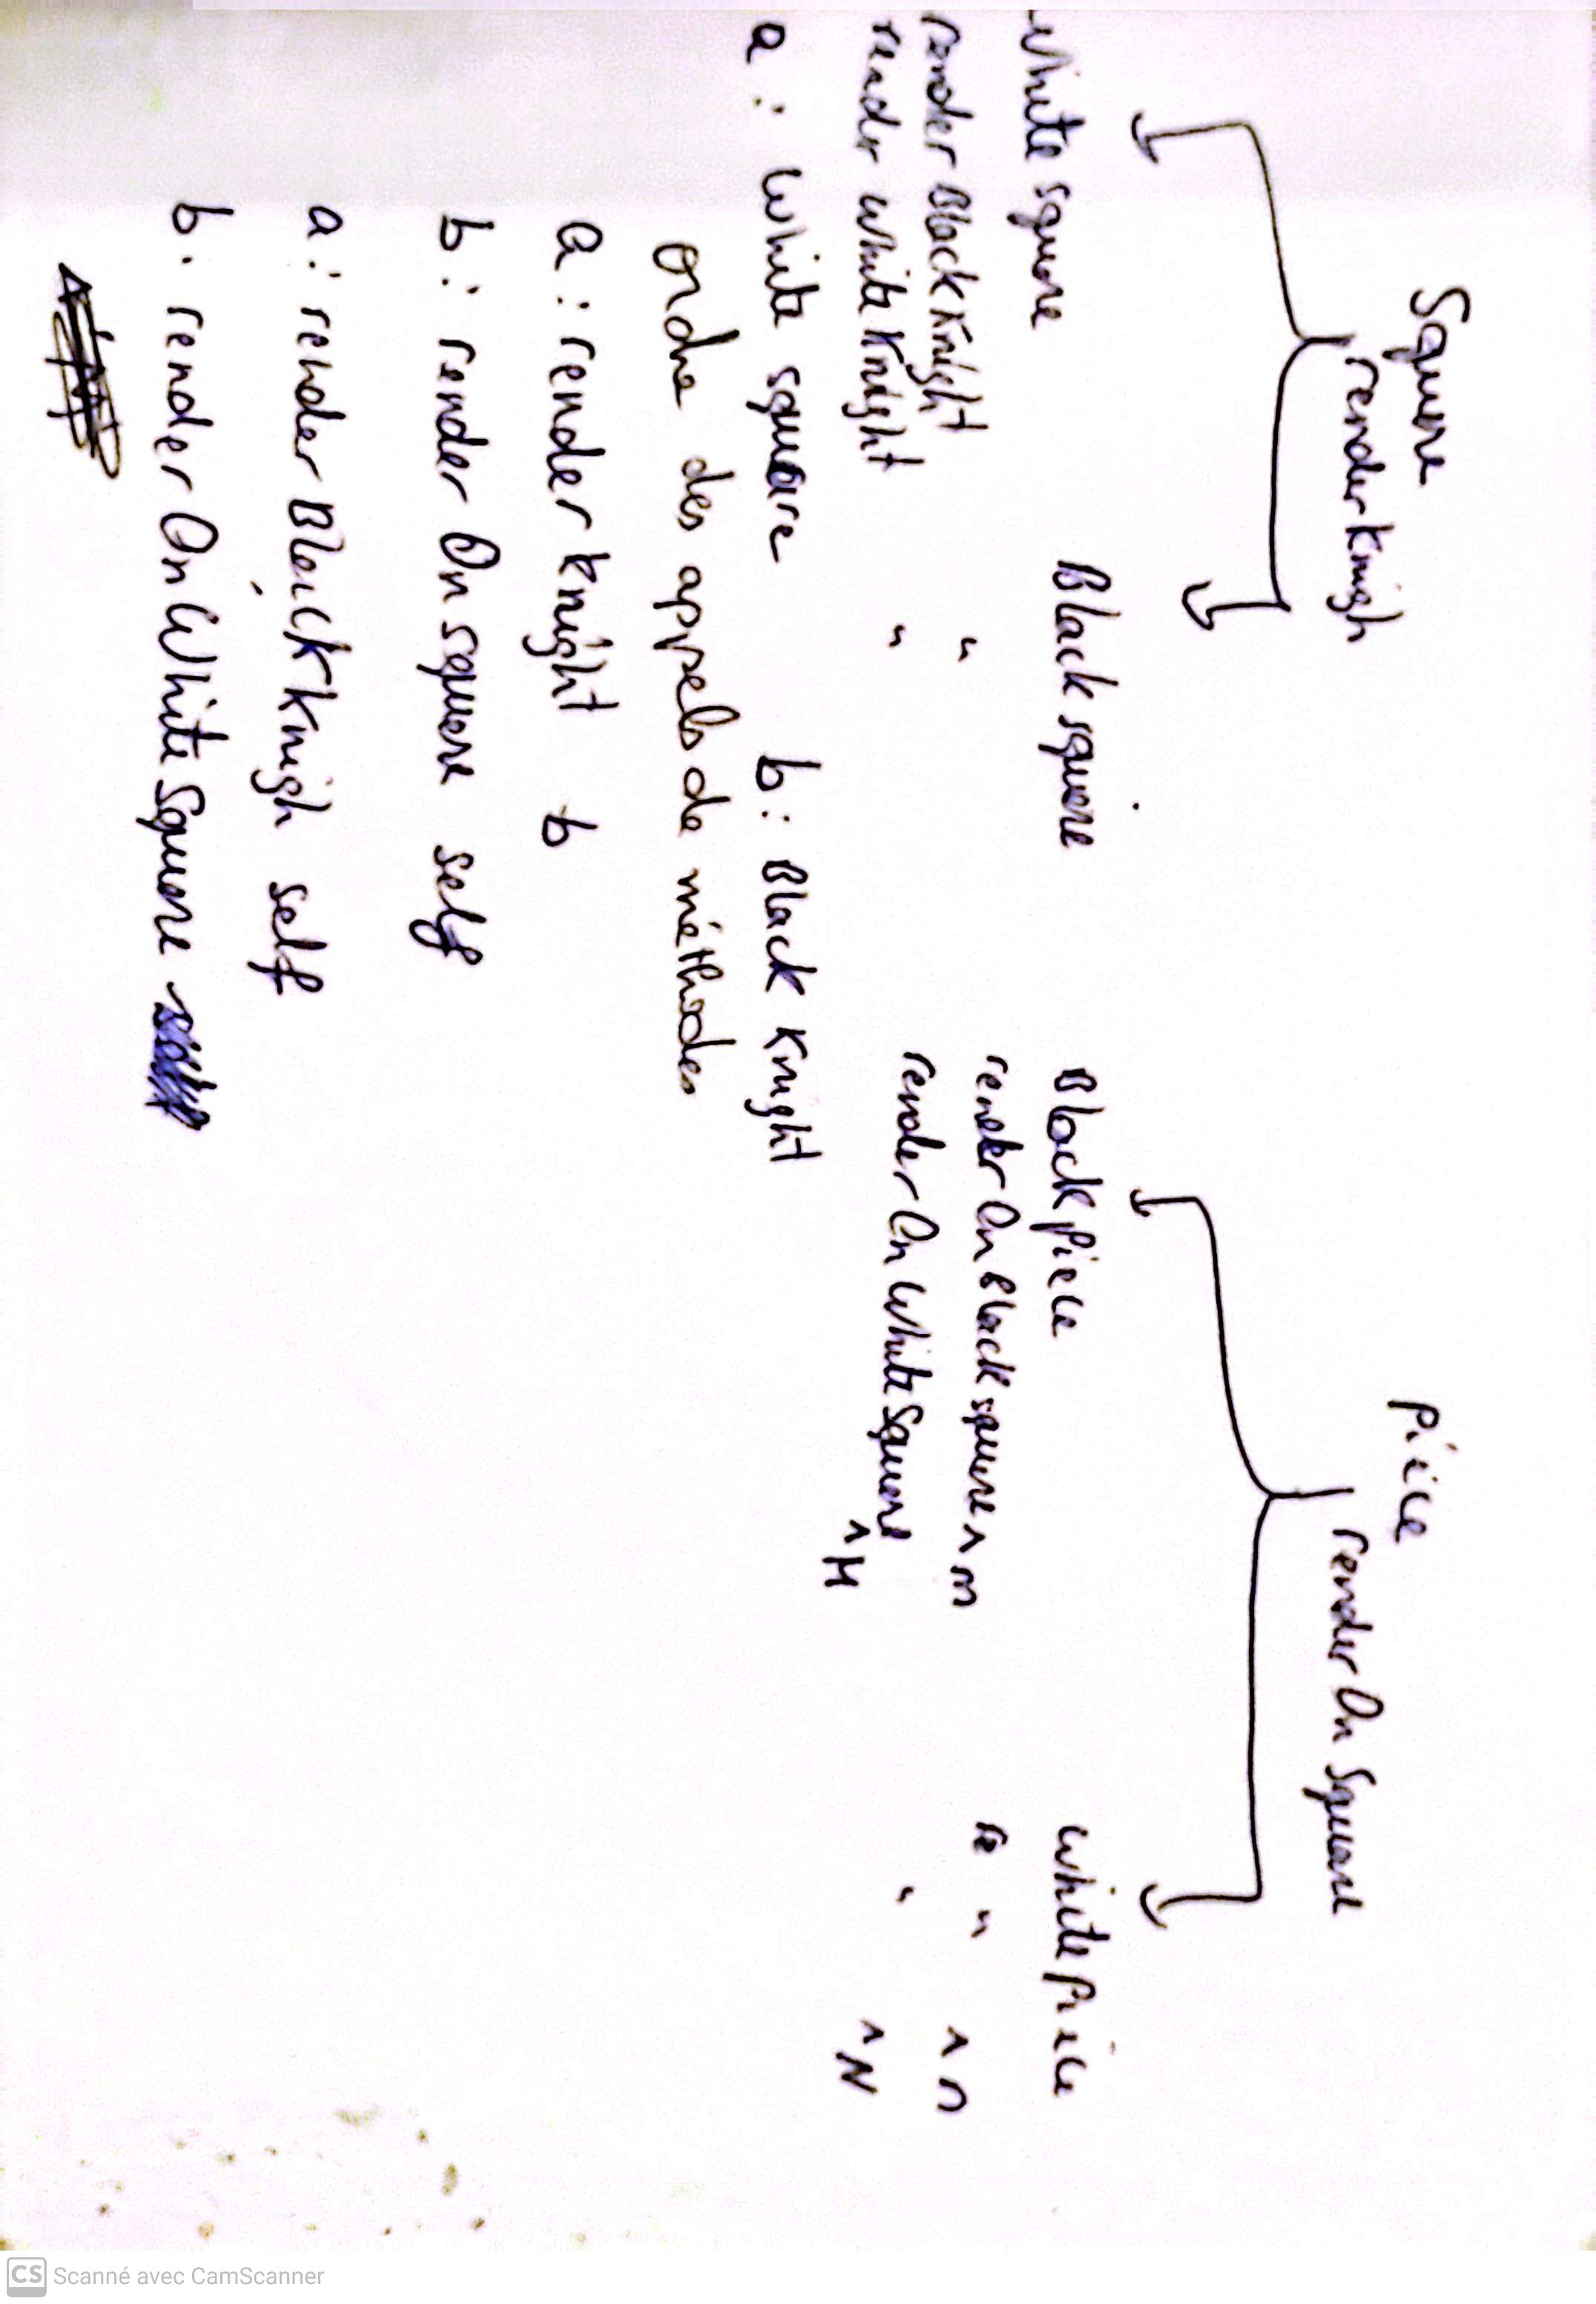 Square
renderKnigh
White square
render BlackKnight
render White Knight
Black square
"
"
pièce
render On Square
Black pièce
render On Black square ^ m
render On White Square
^ M
white pièce
re " ^ n
" ^ N
a : White square b : Black Knight
ordre des appels de méthodes
a : render Knight b
b : render On square self
a : render Black Knigh self
b . render On White Square
Scanné avec CamScanner
CS